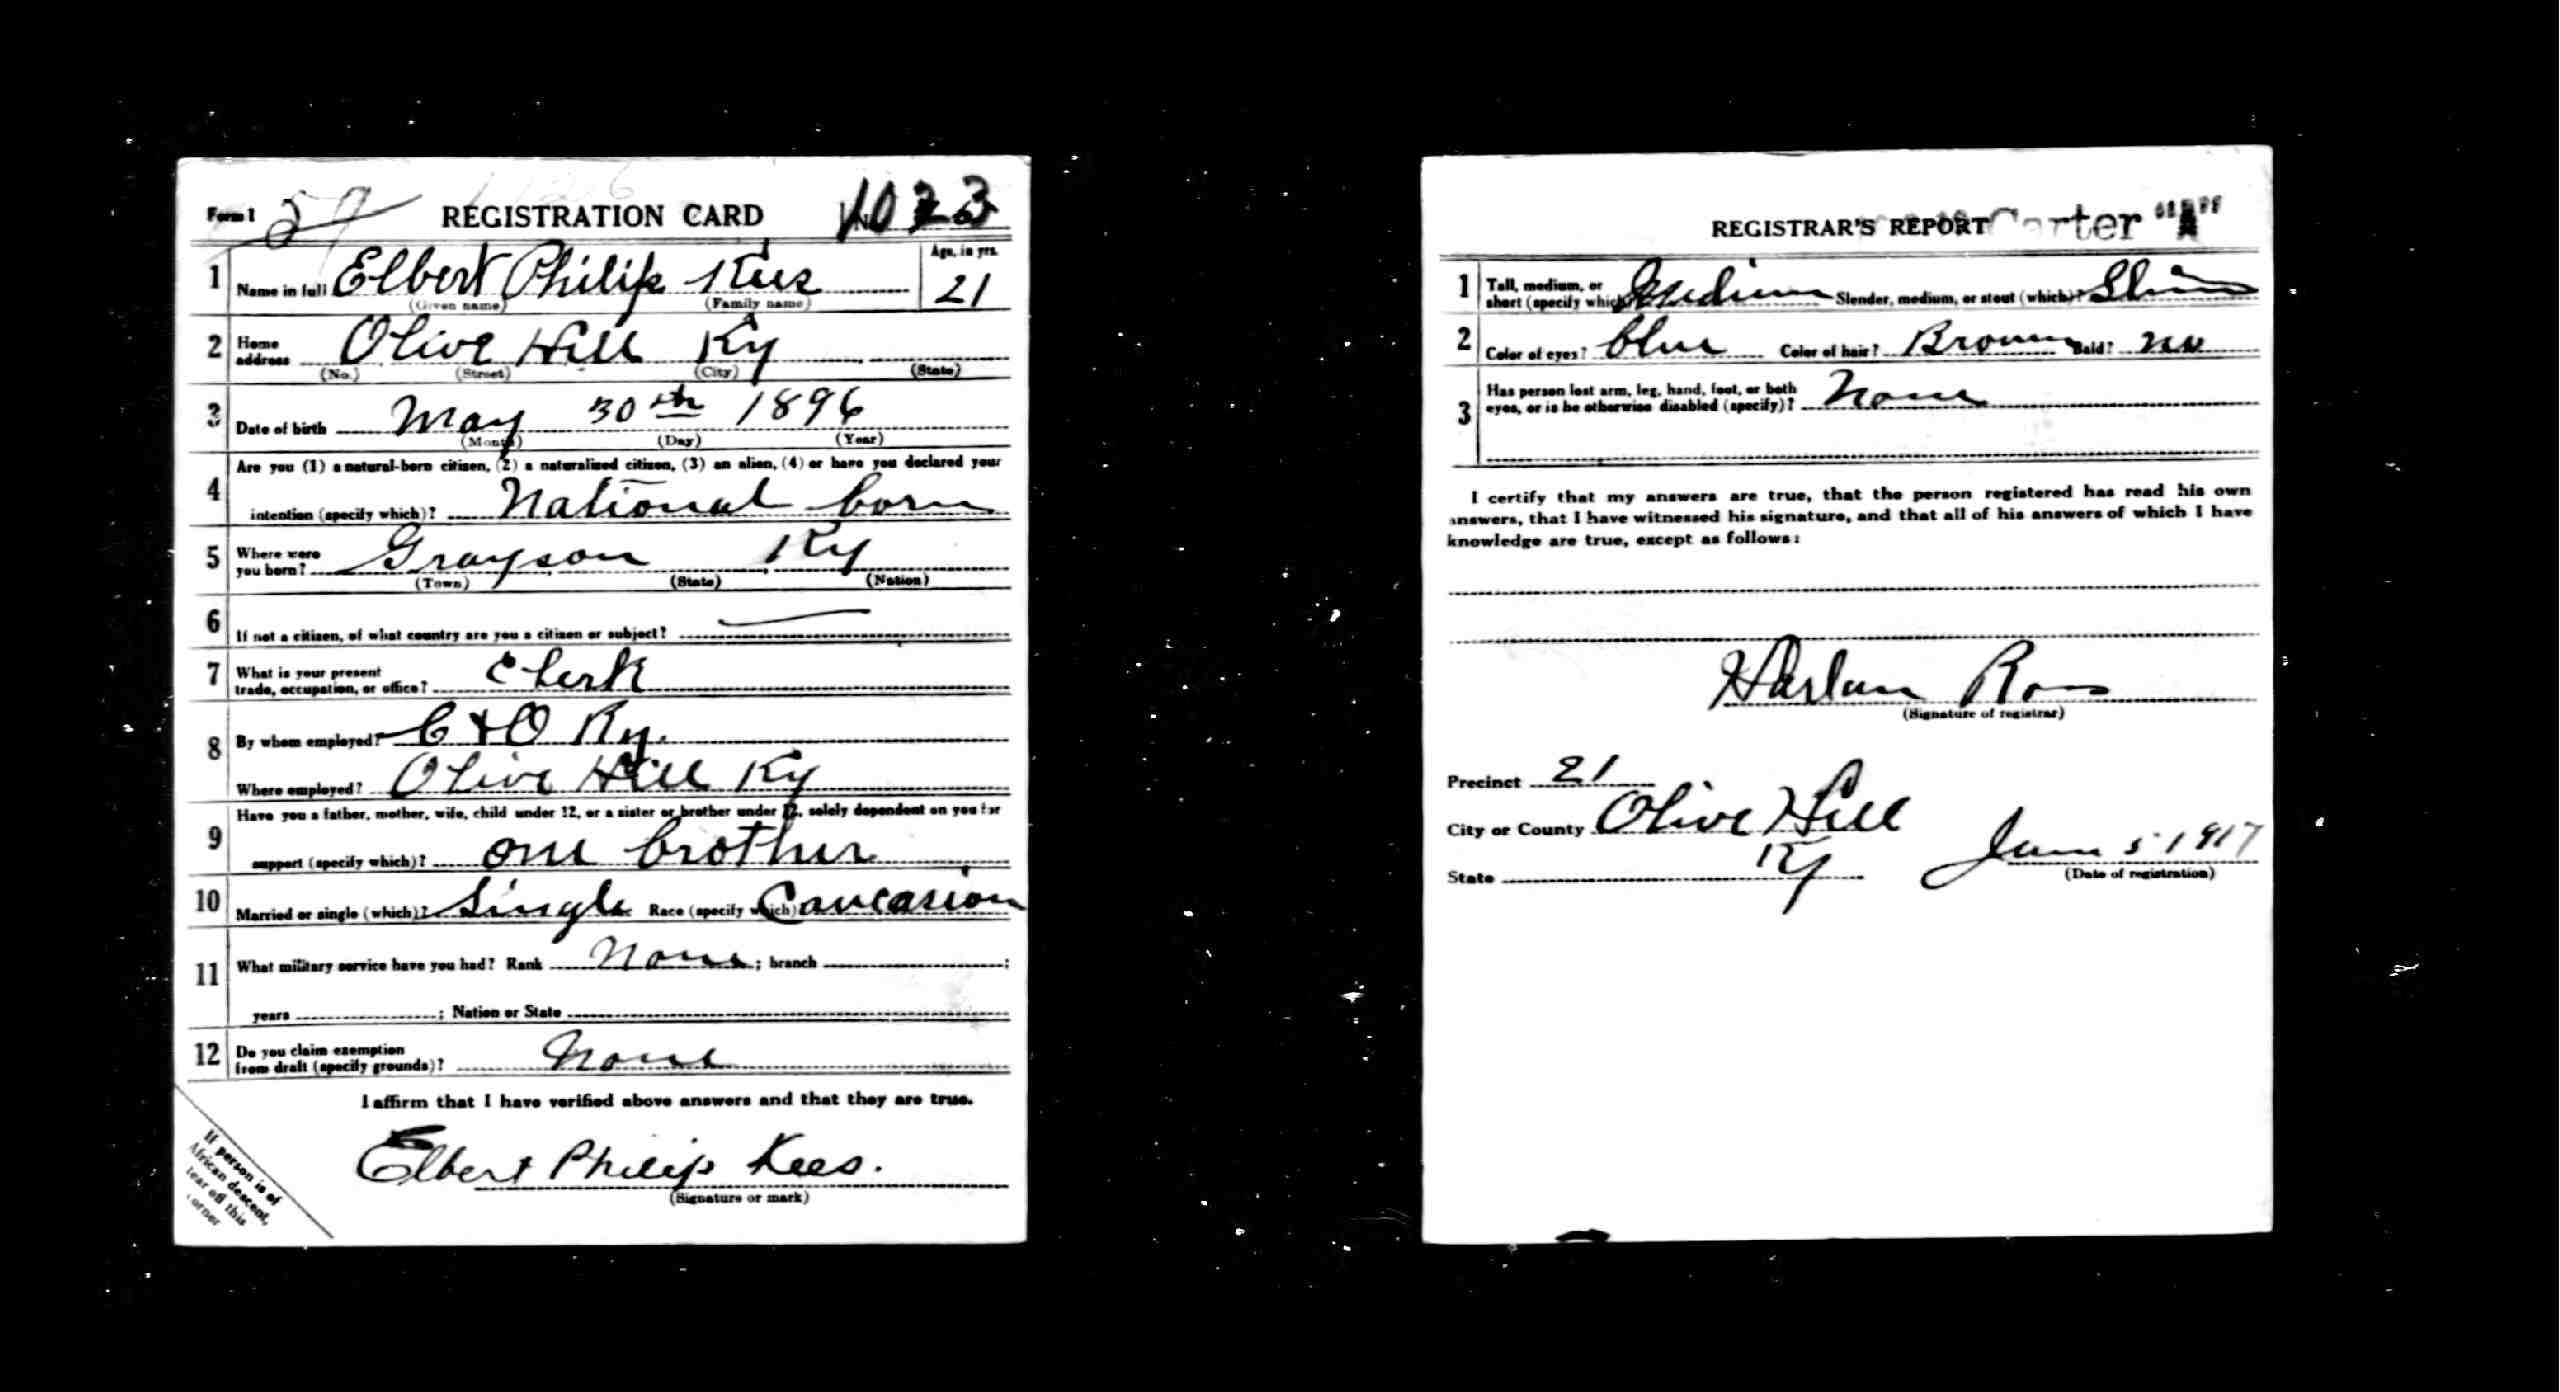 Form 1 REGISTRATION CARD 1023
1 Name in full Elbert Philip Kees Age, in yrs. 21
(Given name) (Family name)
2 Home address Olive Hill Ky
(No.) (Street) (City) (State)
3 Date of birth May 30th 1896
(Month) (Day) (Year)
4 Are you (1) a natural-born citizen, (2) a naturalized citizen, (3) an alien, (4) or have you declared your
intention (specify which)? National born
5 Where were you born? Grayson Ky
(Town) (State) (Nation)
6 If not a citizen, of what country are you a citizen or subject?
7 What is your present
trade, occupation, or office? Clerk
8 By whom employed? C & O Ry.
Where employed? Olive Hill Ky
9 Have you a father, mother, wife, child under 12, or a sister or brother under 12, solely dependent on you for
support (specify which)? one brother
10 Married or single (which)? Single Race (specify which) Caucasion
11 What military service have you had? Rank None ; branch ;
years ; Nation or State
12 Do you claim exemption
from draft (specify grounds)? None
I affirm that I have verified above answers and that they are true.
Elbert Philip Kees.
(Signature or mark)
If person is of
African descent,
tear off this
corner
REGISTRAR'S REPORT Carter "A"
1 Tall, medium, or
short (specify which) Medium Slender, medium, or stout (which)? Slim
2 Color of eyes? blue Color of hair? Brown Bald? no
3 Has person lost arm, leg, hand, foot, or both
eyes, or is he otherwise disabled (specify)? None
I certify that my answers are true, that the person registered has read his own
answers, that I have witnessed his signature, and that all of his answers of which I have
knowledge are true, except as follows:
Harlan Ross
(Signature of registrar)
Precinct 21
City or County Olive Hill
State Ky June 5 1917
(Date of registration)